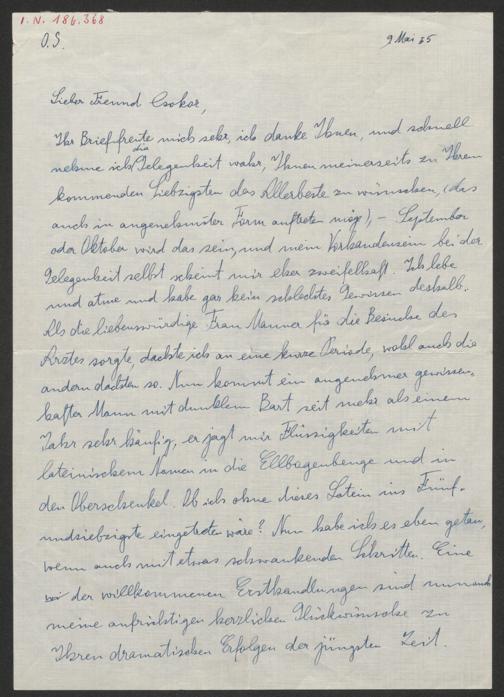 I.N. 186.368
O.S.
9 Mai 55
Lieber Freund Csokor,
Ihr Brief freute mich sehr, ich danke Ihnen, und schnell
nehme ich die Gelegenheit wahr, Ihnen meinerseits zu Ihrem
kommenden Siebzigsten das Allerbeste zu wünschen, (das
auch in angenehmster Form auftreten möge), – September
oder Oktober wird das sein, und mein Vorhandensein bei der
Gelegenheit selbst scheint mir eher zweifelhaft. Ich lebe
und atme und habe gar kein schlechtes Gewissen deshalb.
Als die liebenswürdige Frau Manner für die Besuche des
Arztes sorgte, dachte ich an eine kurze Periode, wohl auch die
andern dachten so. Nun kommt ein angenehmer gewissen-
hafter Mann mit dunklem Bart seit mehr als einem
Jahr sehr häufig, er jagt mir Flüssigkeiten mit
lateinischem Namen in die Ellbogenbeuge und in
den Oberschenkel. Ob ich ohne dieses Latein ins Fünf-
undsiebzigste eingetreten wäre? Nun habe ich es eben getan,
wenn auch mit etwas schwankenden Schritten. Eine
der willkommenen Ersthandlungen sind nun auch
meine aufrichtigen herzlichen Glückwünsche zu
Ihren dramatischen Erfolgen der jüngsten Zeit.